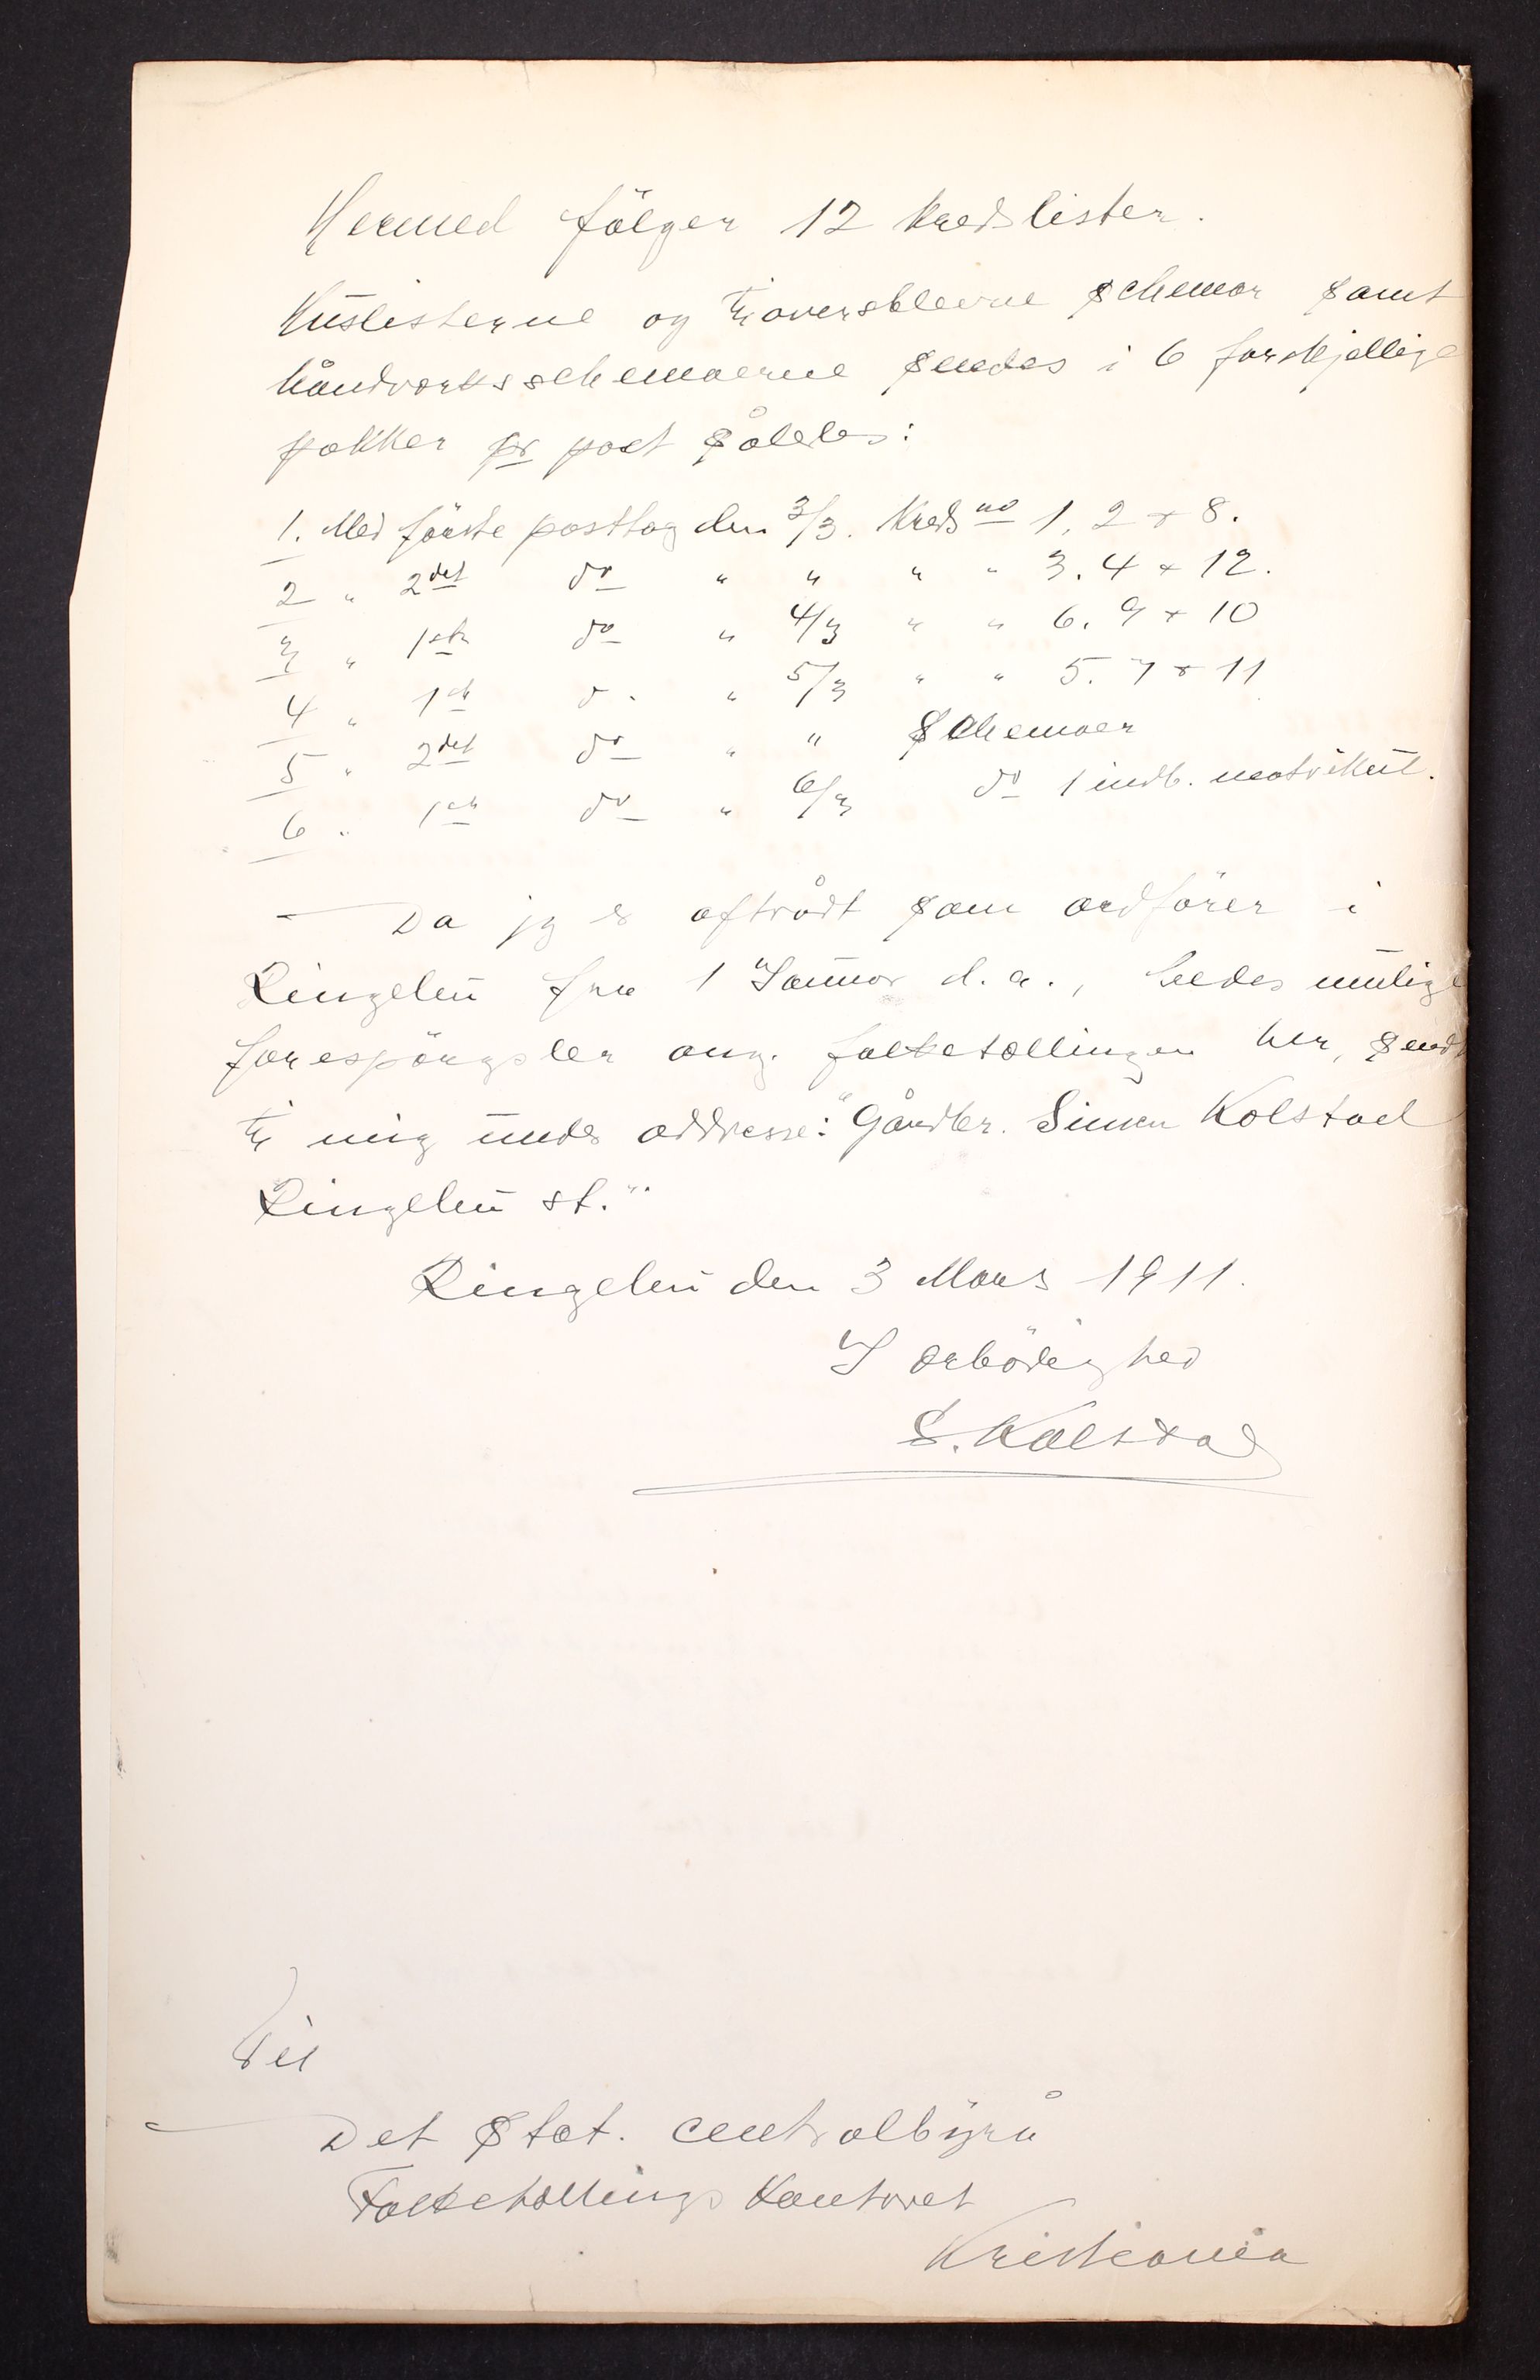 Hermed fölger 12 kredslister.
Huslisterne og tiloversblevne schemaer samt
håndverksschemaerne sendes i 6 forskjellige
pakker pr post således:
1. Med förste posttog den 3/3. Kreds no 1, 2 + 8.
2 " 2det do " " " " 3. 4 + 12.
3 " 1ste do " 4/3 " " 6. 9 + 10
4 " 1ste do " 5/3 " " 5. 7 + 11
5 " 2det do " " Schemaer
6 " 1ste do " 6/3 do 1 indb. matrikul.
Da jeg er aftrådt som ordförer i
Ringebu fra 1 Januar d. a., bedes mulige
forespörgsler ang. folketællingen her, sendt
til mig under addresse: "Gårdbr. Simen Kolstad
Ringebu st."
Ringebu den 3 Mars 1911.
I ærbödighed
S. Kolstad
Til
Det Stat. centralbyrå
Folketællings Kontoret
Kristiania